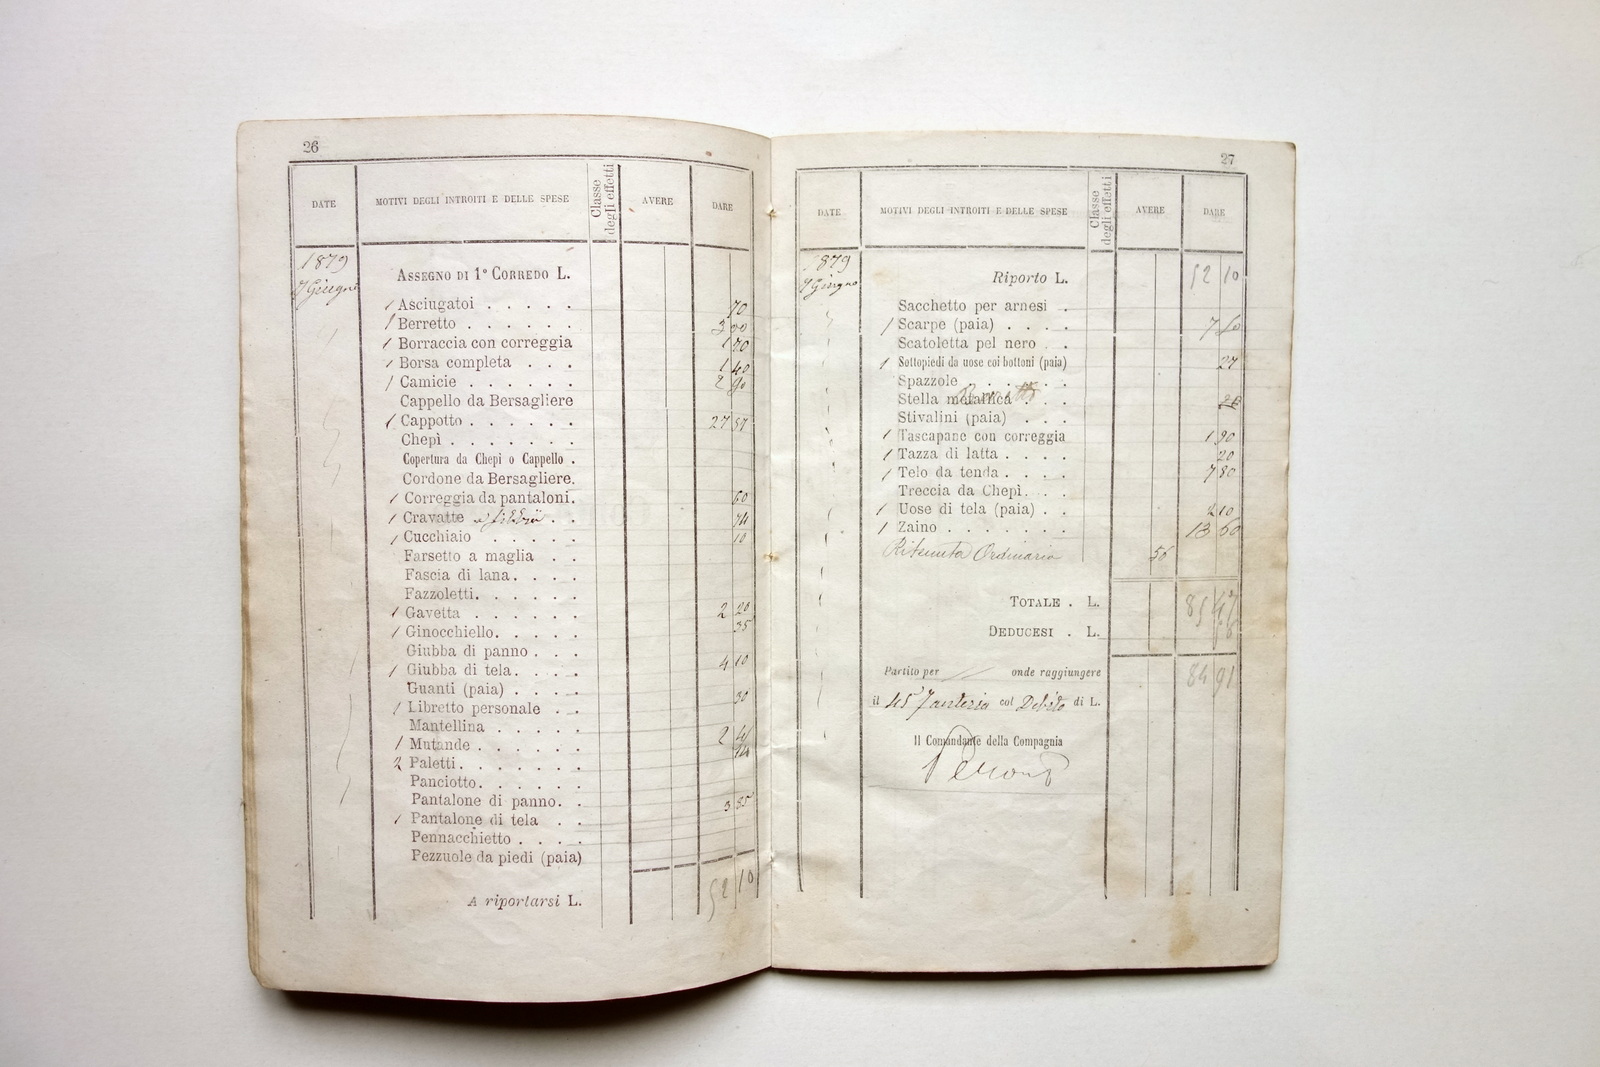 26
DATE
MOTIVI DEGLI INTROITI E DELLE SPESE
Classe degli effetti
AVERE
DARE
1879
Giugno
ASSEGNO DI 1° CORREDO L.
/ Asciugatoi . . . . . 70
/ Berretto . . . . . .
/ Borraccia con correggia
/ Borsa completa . . . 1 40
/ Camicie . . . . . . 2 90
Cappello da Bersagliere
/ Cappotto . . . . . . 27 57
Chepì . . . . . . .
Copertura da Chepì o Cappello .
Cordone da Bersagliere.
/ Correggia da pantaloni. 60
/ Cravatte . .
/ Cucchiaio . . . . . 10
Farsetto a maglia . .
Fascia di lana. . . .
Fazzoletti. . . . . .
/ Gavetta . . . . . . 2 20
/ Ginocchiello. . . . . 35
Giubba di panno . . .
/ Giubba di tela. . . . 4 10
Guanti (paia) . . . .
/ Libretto personale . . 30
Mantellina . . . . .
/ Mutande . . . . . .
2 Paletti. . . . . . .
Panciotto. . . . . .
Pantalone di panno. .
/ Pantalone di tela . . 3 85
Pennacchietto . . . .
Pezzuole da piedi (paia)
A riportarsi L. 52 10
27
DATE
MOTIVI DEGLI INTROITI E DELLE SPESE
Classe degli effetti
AVERE
DARE
1879
Giugno
Riporto L. 52 10
Sacchetto per arnesi .
/ Scarpe (paia) . . . .
Scatoletta pel nero . .
/ Sottopiedi da uose coi bottoni (paia) 27
Spazzole . . . . . .
Stella metallica . . .
Stivalini (paia) . . .
/ Tascapane con correggia 1 90
/ Tazza di latta . . . . 20
/ Telo da tenda . . . . 7 80
Treccia da Chepì. . .
/ Uose di tela (paia) . . 2 10
/ Zaino . . . . . . . 13 60
Ritenuta Ordinaria 56
TOTALE . L.
DEDUCESI . L.
84 91
Partito per onde raggiungere
il 45 Fanteria col Debito di L.
Il Comandante della Compagnia